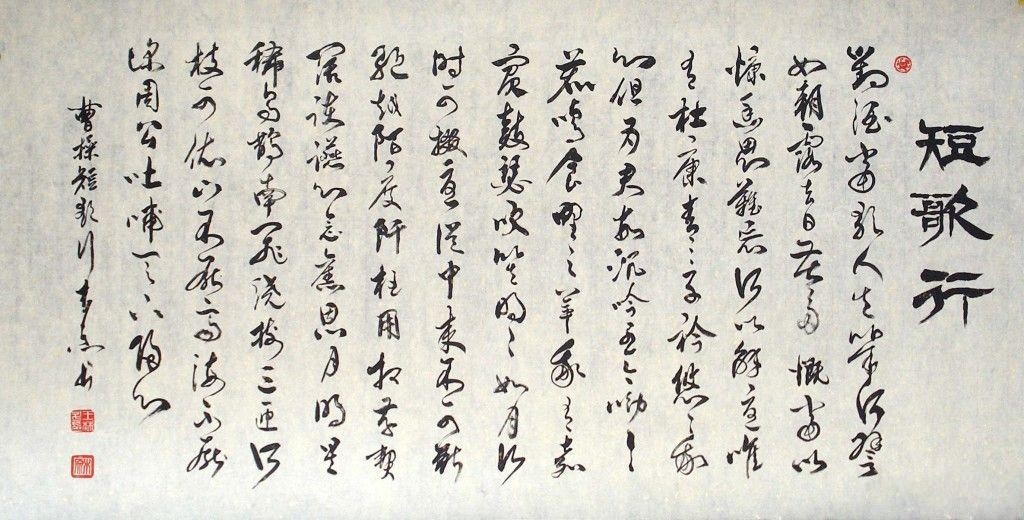 短歌行
對酒當歌人生幾何譬
如朝露去日苦多慨當以
慷憂思難忘何以解憂唯
有杜康青々子衿悠々我
心但为君故沉吟至今呦々
鹿鳴食野之苹我有嘉
賓鼓瑟吹笙明々如月何
時可掇憂從中來不可斷
越陌度阡枉用相存契
闊談讌心念舊恩月明星
稀烏鵲南飛繞樹三匝何
枝可依山不厭高海不厭
深周公吐哺天下歸心
曹操短歌行